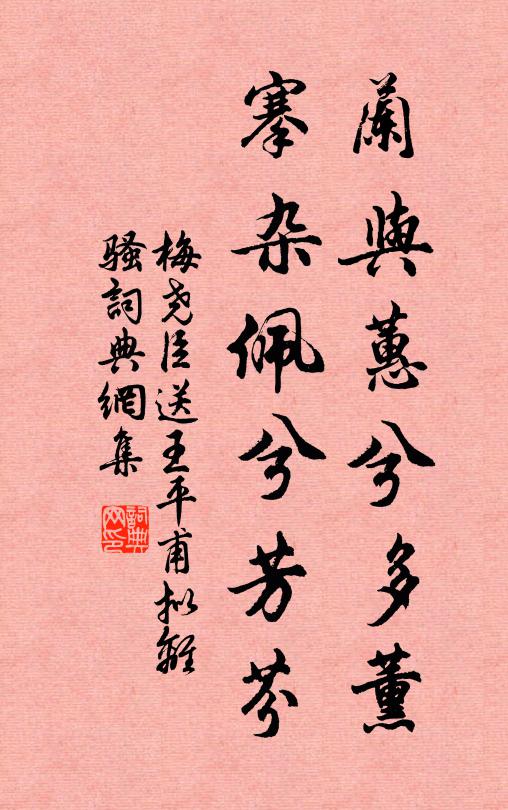 蘭與蕙兮多薰
搴杂佩兮芳芬
梅尧臣送王平甫拟離
騷詞典網集
詞典网印